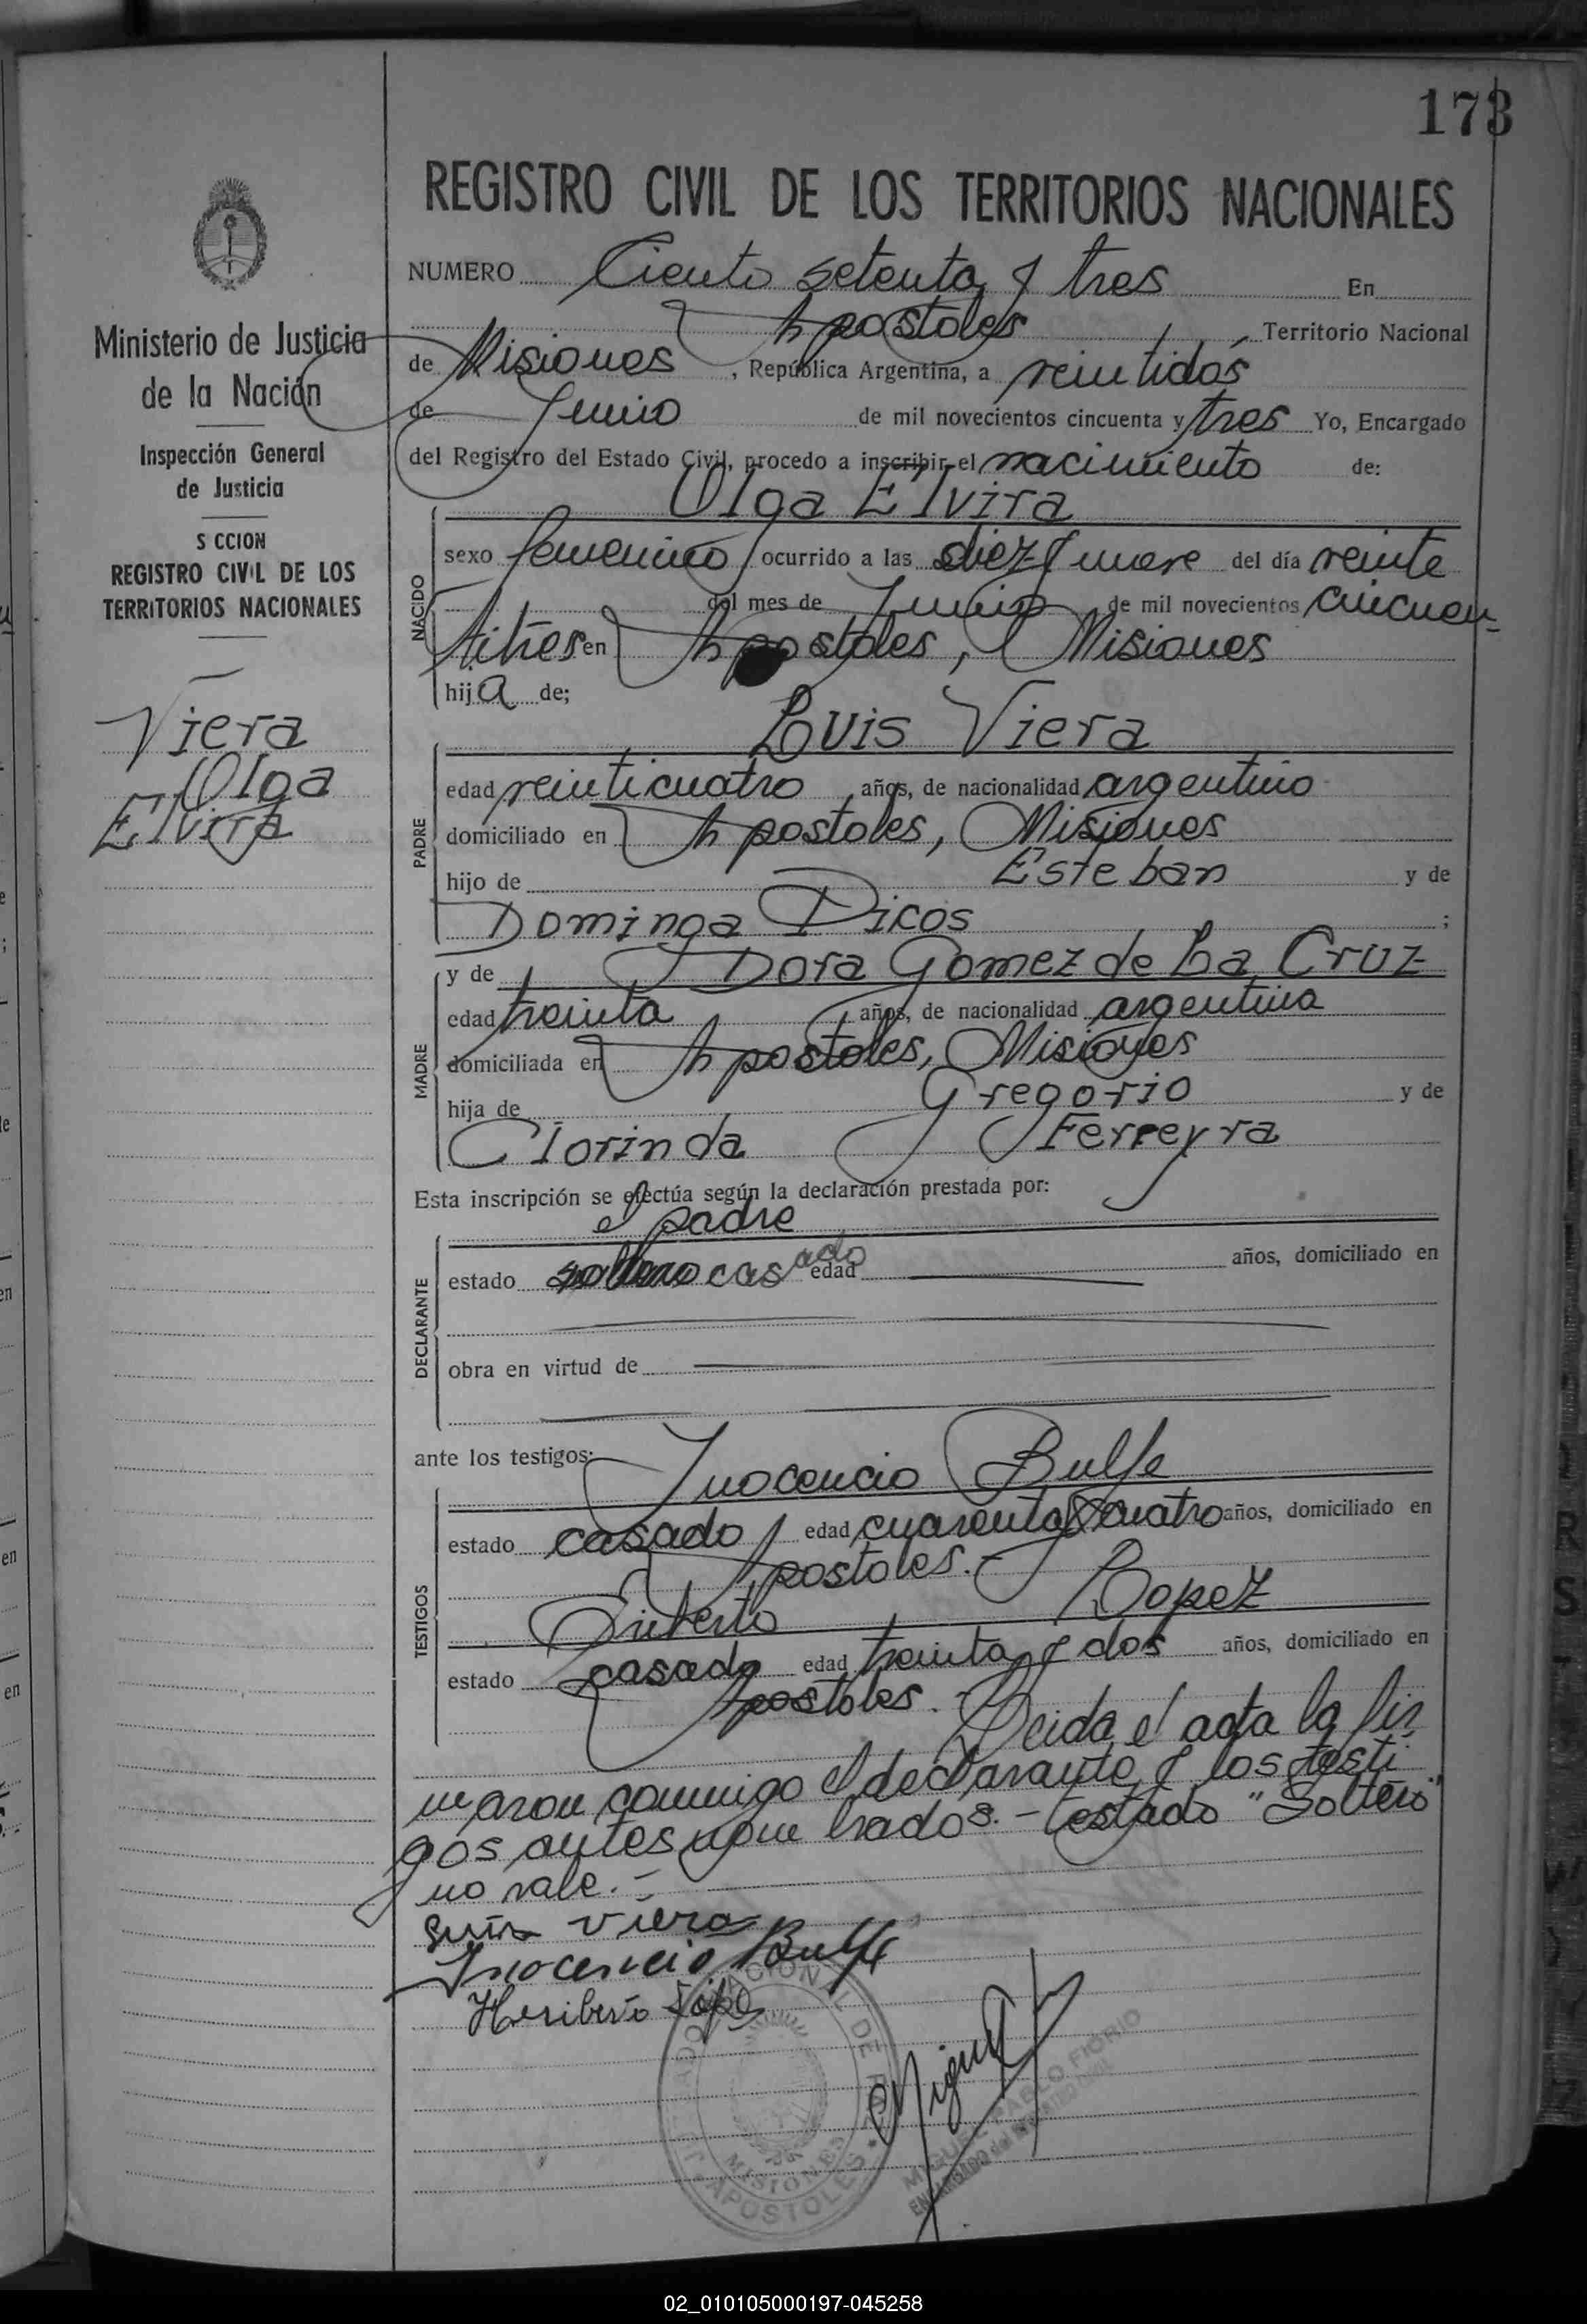 173
REGISTRO CIVIL DE LOS TERRITORIOS NACIONALES
Ministerio de Justicia
de la Nación
Inspección General
de Justicia
S CCION
REGISTRO CIVIL DE LOS
TERRITORIOS NACIONALES
Viera
Olga
Elvira
NUMERO Ciento setenta y tres En
Apostoles, Territorio Nacional
de Misiones, República Argentina, a veintidós
de Junio de mil novecientos cincuenta y tres Yo, Encargado
del Registro del Estado Civil, procedo a inscribir el nacimiento de:
Olga Elvira
NACIDO
sexo femenino ocurrido a las diez y nueve del día veinte
del mes de Junio de mil novecientos cincuen-
titres en Apostoles, Misiones
hija de;
Luis Viera
PADRE
edad veinticuatro años, de nacionalidad argentino
domiciliado en Apostoles, Misiones
hijo de Esteban y de
Dominga Dicos;
y de Dora Gomez de La Cruz
MADRE
edad treinta años, de nacionalidad argentina
domiciliada en Apostoles, Misiones
hija de Gregorio y de
Clorinda Ferreyra
Esta inscripción se efectúa según la declaración prestada por:
el padre
DECLARANTE
estado soltero casado edad años, domiciliado en
obra en virtud de
ante los testigos: Inocencio Bulfe
TESTIGOS
estado casado edad cuarenta y cuatro años, domiciliado en
Apostoles.-
Lopez
estado casado edad treinta y dos años, domiciliado en
Apostoles.- Leida el acta la fir
maron conmigo el declarante y los testi
gos antes nombrados.- testado "Soltero"
no vale.-
Luis Viera
Inocencio Bulfe
Heriberto López
NACIONAL DE
MISIONES
APOSTOLES
Miguel
MIGUEL PABLO FIORIO
ENCARGADO del REGISTRO CIVIL
02_010105000197-045258